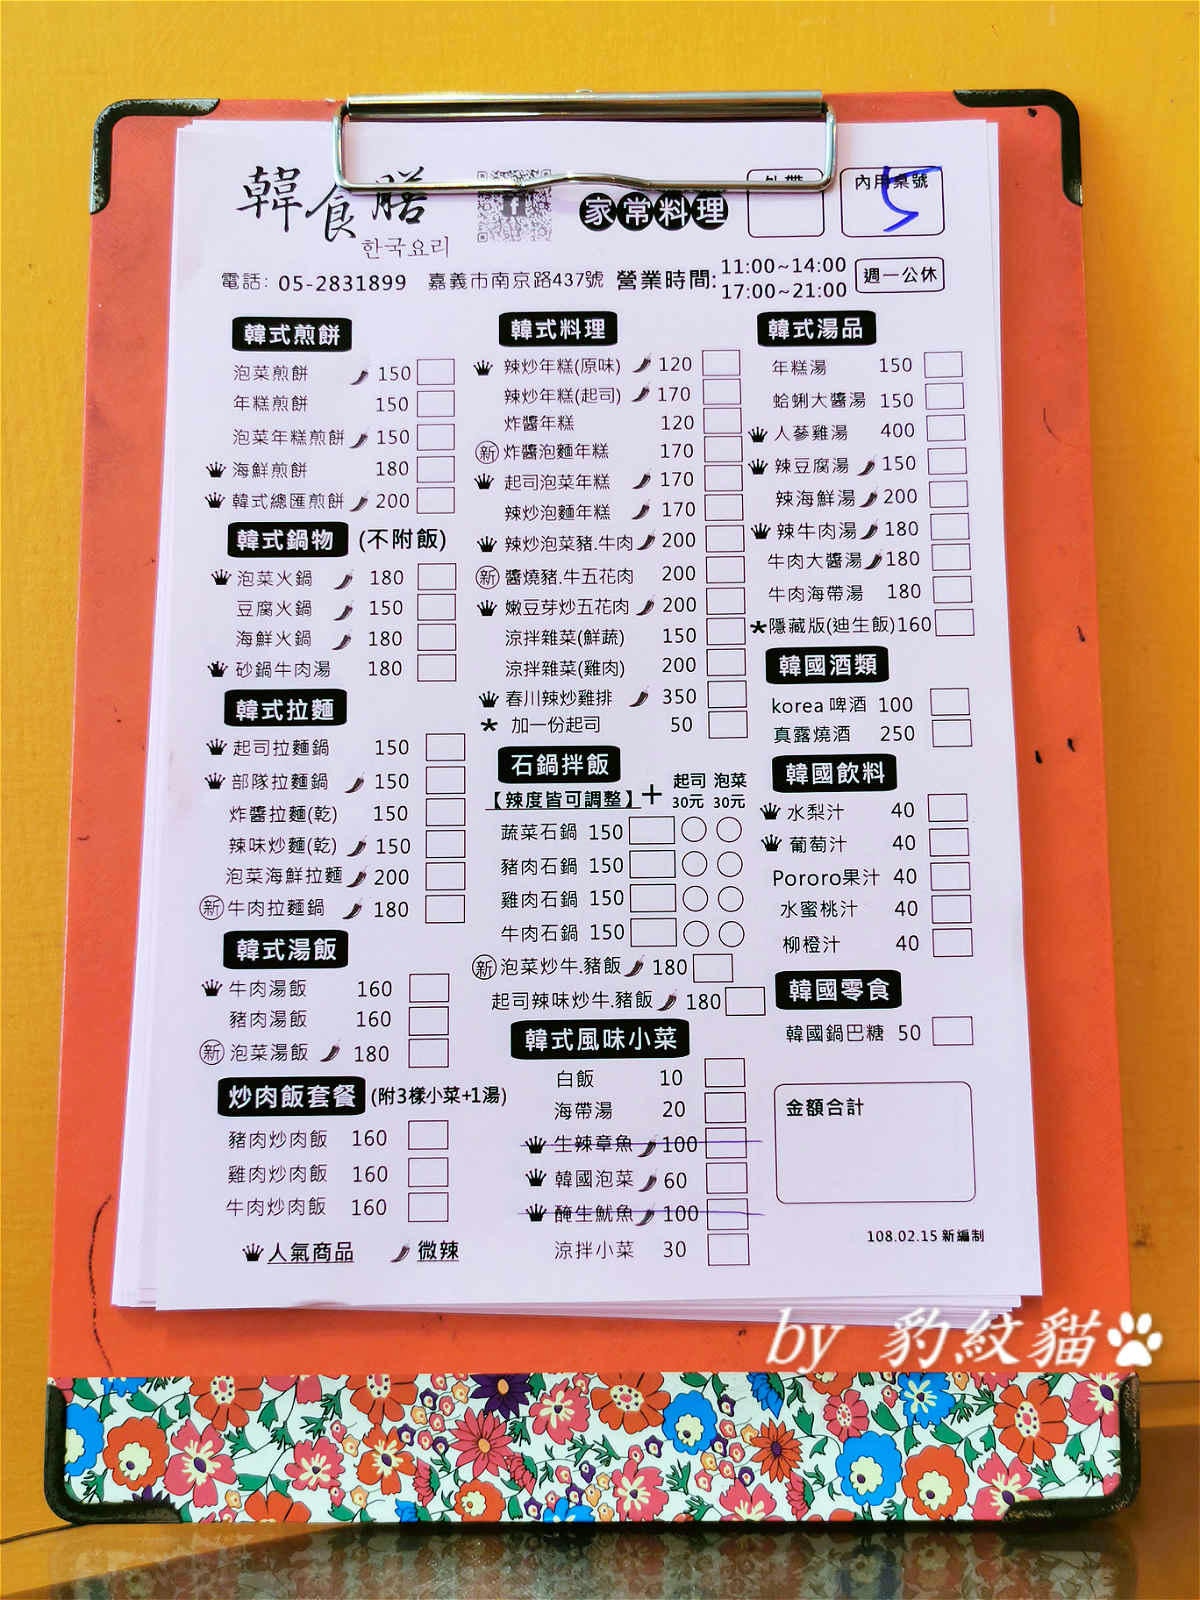 韓食膳
한국요리
家常料理
外帶
內用桌號
5
電話: 05-2831899 嘉義市南京路437號 營業時間: 11:00~14:00
17:00~21:00
週一公休
韓式煎餅
泡菜煎餅 150
年糕煎餅 150
泡菜年糕煎餅 150
海鮮煎餅 180
韓式總匯煎餅 200
韓式鍋物 (不附飯)
泡菜火鍋 180
豆腐火鍋 150
海鮮火鍋 180
砂鍋牛肉湯 180
韓式拉麵
起司拉麵鍋 150
部隊拉麵鍋 150
炸醬拉麵(乾) 150
辣味炒麵(乾) 150
泡菜海鮮拉麵 200
新 牛肉拉麵鍋 180
韓式湯飯
牛肉湯飯 160
豬肉湯飯 160
新 泡菜湯飯 180
炒肉飯套餐 (附3樣小菜+1湯)
豬肉炒肉飯 160
雞肉炒肉飯 160
牛肉炒肉飯 160
人氣商品 微辣
韓式料理
辣炒年糕(原味) 120
辣炒年糕(起司) 170
炸醬年糕 120
新 炸醬泡麵年糕 170
起司泡菜年糕 170
辣炒泡麵年糕 170
辣炒泡菜豬.牛肉 200
新 醬燒豬.牛五花肉 200
嫩豆芽炒五花肉 200
涼拌雜菜(鮮蔬) 150
涼拌雜菜(雞肉) 200
春川辣炒雞排 350
* 加一份起司 50
石鍋拌飯
【辣度皆可調整】+ 起司 泡菜
30元 30元
蔬菜石鍋 150
豬肉石鍋 150
雞肉石鍋 150
牛肉石鍋 150
新 泡菜炒牛.豬飯 180
起司辣味炒牛.豬飯 180
韓式風味小菜
白飯 10
海帶湯 20
生辣章魚 100
韓國泡菜 60
醃生魷魚 100
涼拌小菜 30
韓式湯品
年糕湯 150
蛤蜊大醬湯 150
人蔘雞湯 400
辣豆腐湯 150
辣海鮮湯 200
辣牛肉湯 180
牛肉大醬湯 180
牛肉海帶湯 180
*隱藏版(迪生飯) 160
韓國酒類
korea 啤酒 100
真露燒酒 250
韓國飲料
水梨汁 40
葡萄汁 40
Pororo果汁 40
水蜜桃汁 40
柳橙汁 40
韓國零食
韓國鍋巴糖 50
金額合計
108.02.15 新編制
by 豹紋貓